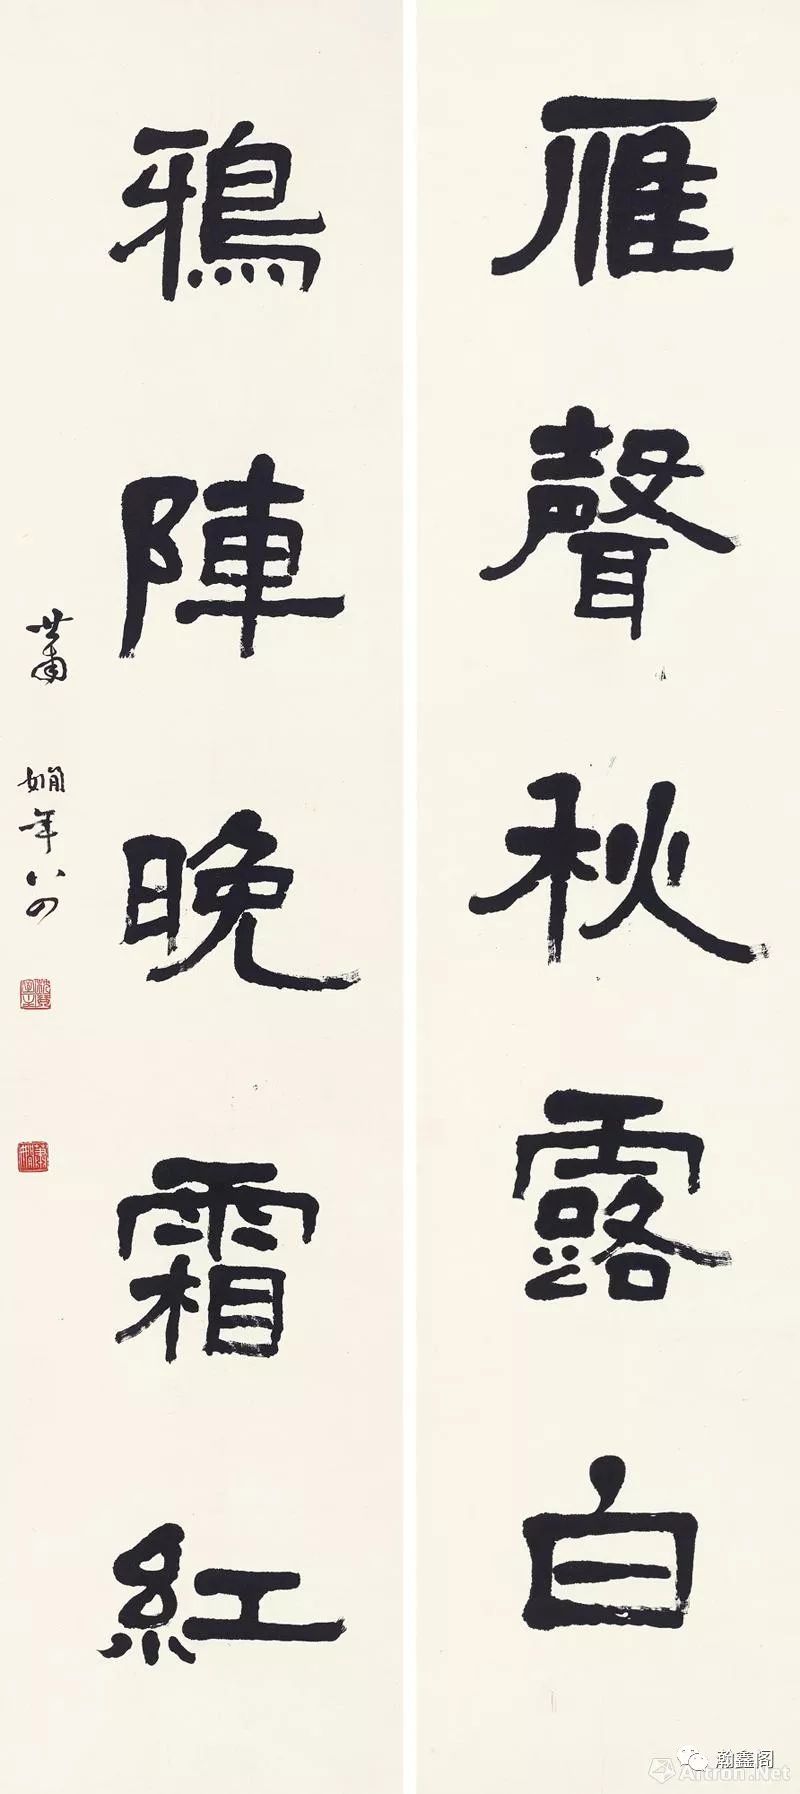 雁聲秋露白
鴉陣晚霜紅
蕭嫻年八四
瀚鑫阁
Artron.Net